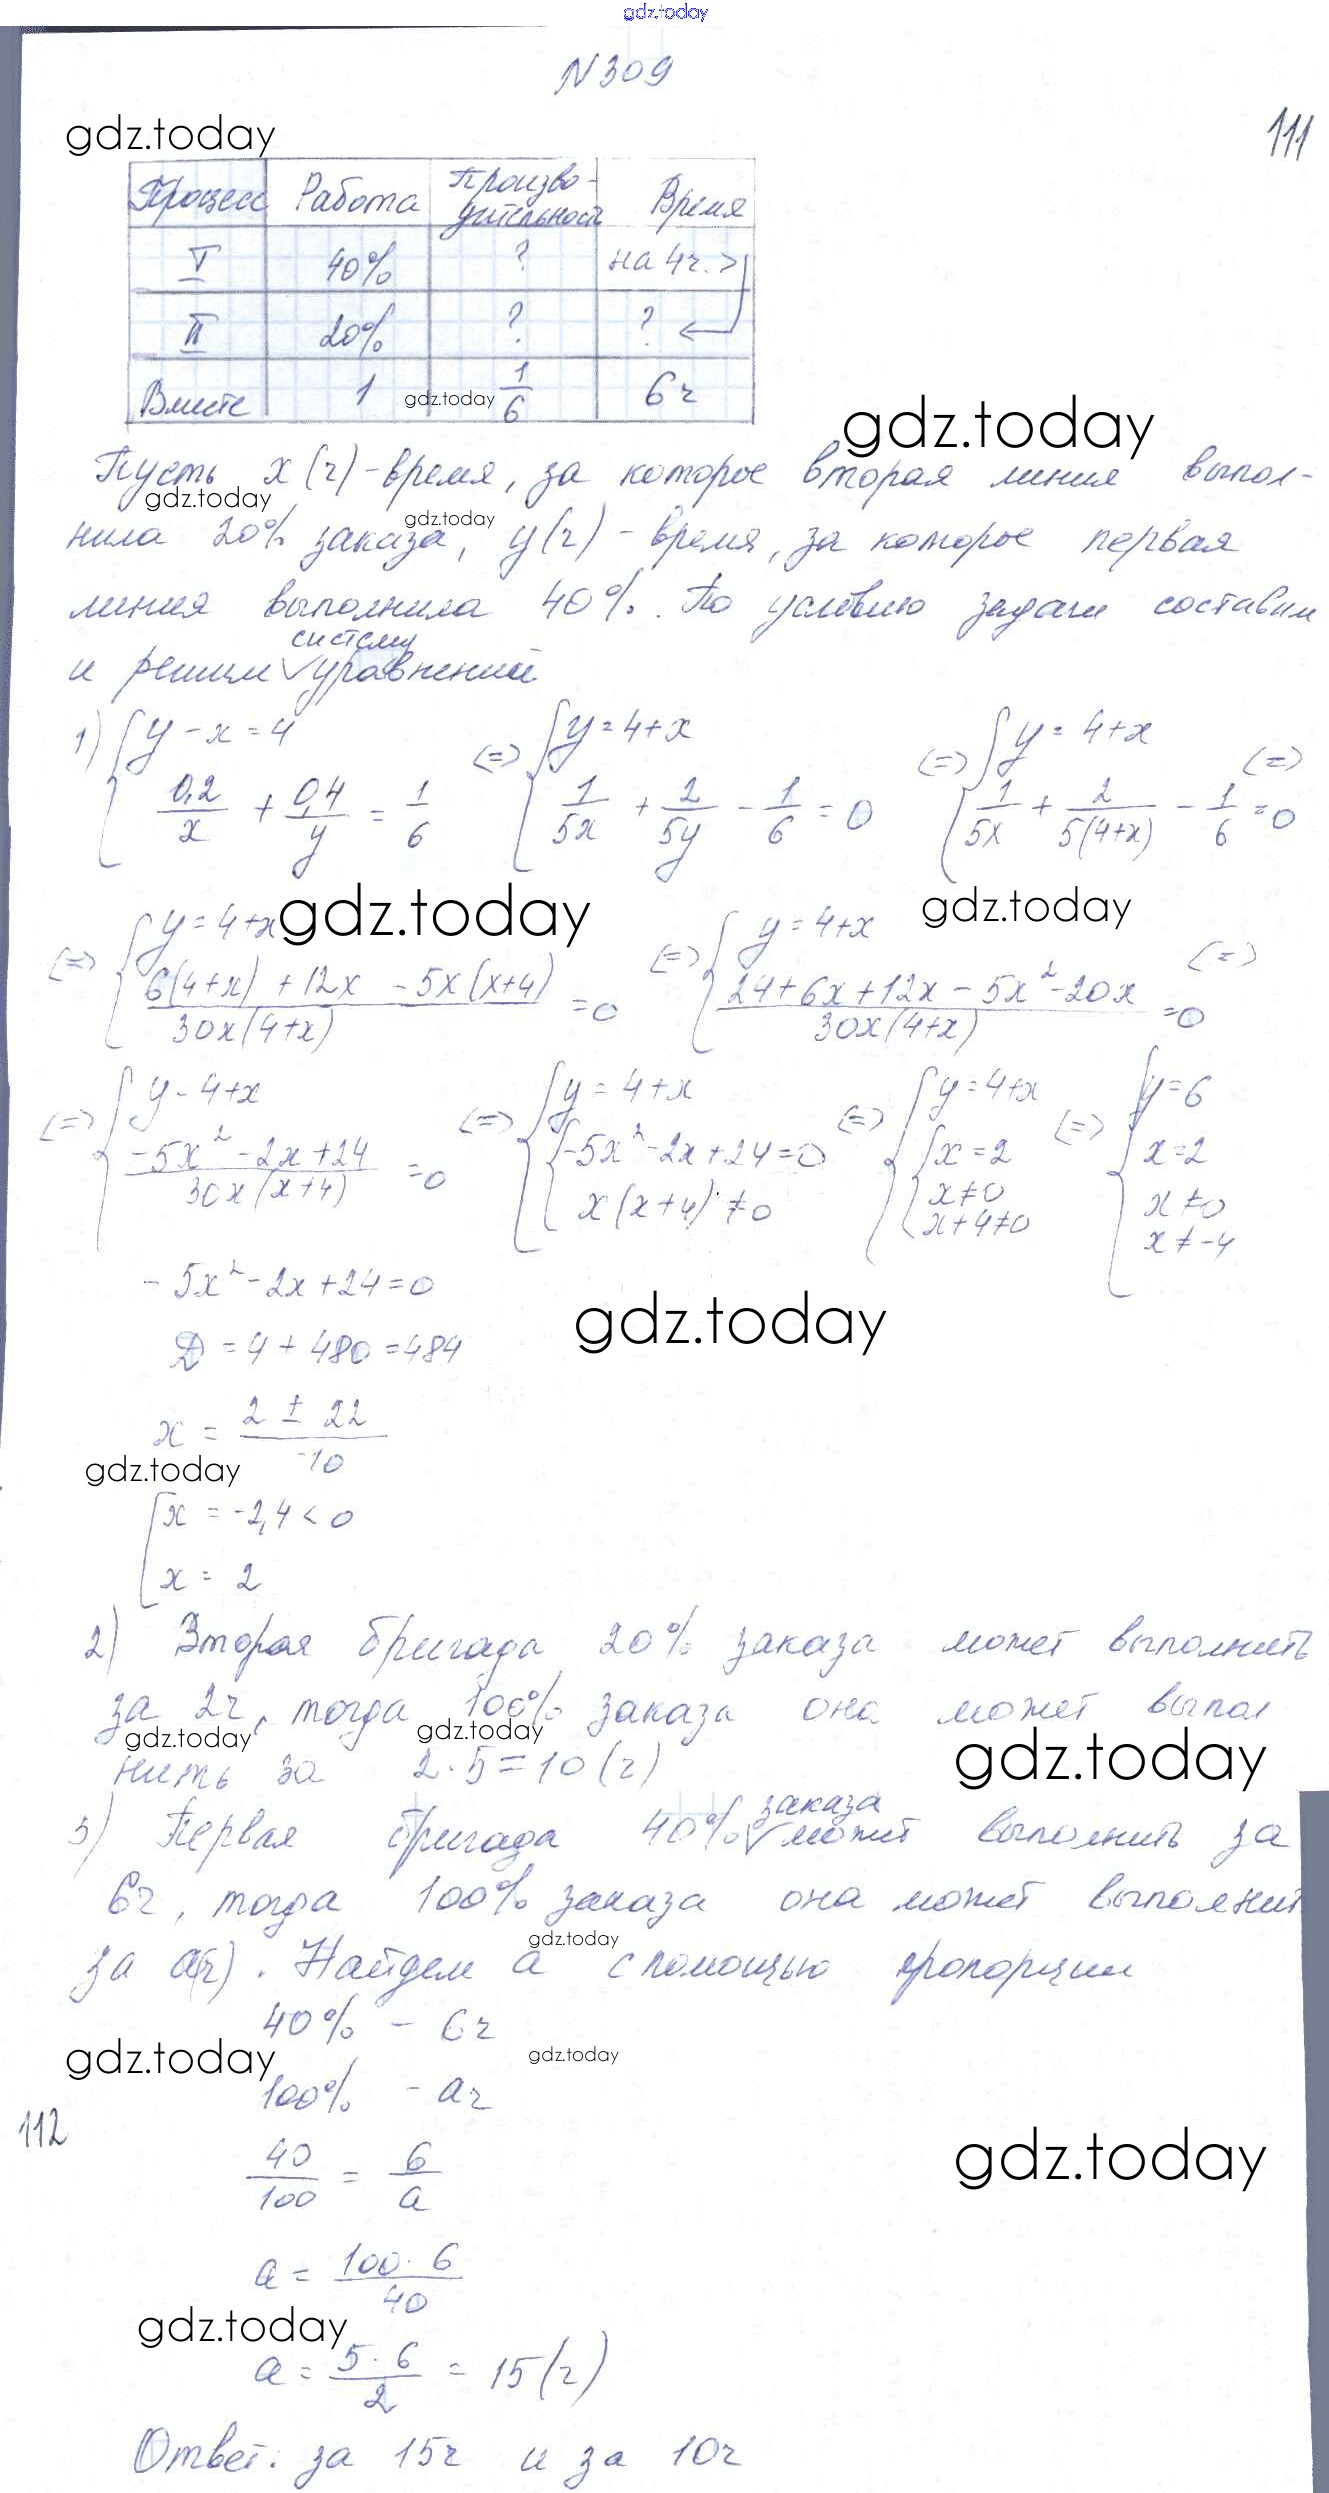 gdz.today
N 309
gdz.today
111
Процесс Работа Производительность Время
I 40% ? на 4ч. >
II 20% ? ?
Вместе 1 gdz.today 1/6 6ч
gdz.today
Пусть x (ч) - время, за которое вторая линия выпол-
gdz.today gdz.today
нила 20% заказа, y (ч) - время, за которое первая
линия выполнила 40%. По условию задачи составим
и решим систему уравнений
1) { y - x = 4 ; 0,2/x + 0,4/y = 1/6 (=) { y = 4+x ; 1/5x + 2/5y - 1/6 = 0 (=) { y = 4+x ; 1/5x + 2/5(4+x) - 1/6 = 0 (=)
gdz.today gdz.today
(=) { y = 4+x ; 6(4+x) + 12x - 5x(x+4) / 30x(4+x) = 0 (=) { y = 4+x ; 24+6x+12x - 5x² - 20x / 30x(4+x) = 0 (=)
(=) { y - 4+x ; -5x² - 2x + 24 / 30x(x+4) = 0 (=) { y = 4+x ; { -5x² - 2x + 24 = 0 ; x(x+4) ≠ 0 (=) { y = 4+x ; { x = 2 ; x ≠ 0 ; x+4 ≠ 0 (=) { y = 6 ; x = 2 ; x ≠ 0 ; x ≠ -4
- 5x² - 2x + 24 = 0
gdz.today
D = 4 + 480 = 484
x = 2 ± 22 / -10
gdz.today
[ x = -2,4 < 0
x = 2
2) Вторая бригада 20% заказа может выполнить
за 2ч, тогда 100% заказа она может выпол
gdz.today gdz.today gdz.today
нить за 2·5 = 10 (ч)
3) Первая бригада 40% заказа может выполнить за
6ч, тогда 100% заказа она может выполнит
gdz.today
за a(ч). Найдем a с помощью пропорции
40% - 6ч
gdz.today gdz.today
100% - aч
112
40/100 = 6/a
gdz.today
a = 100·6 / 40
gdz.today
a = 5·6 / 2 = 15 (ч)
Ответ: за 15ч и за 10ч